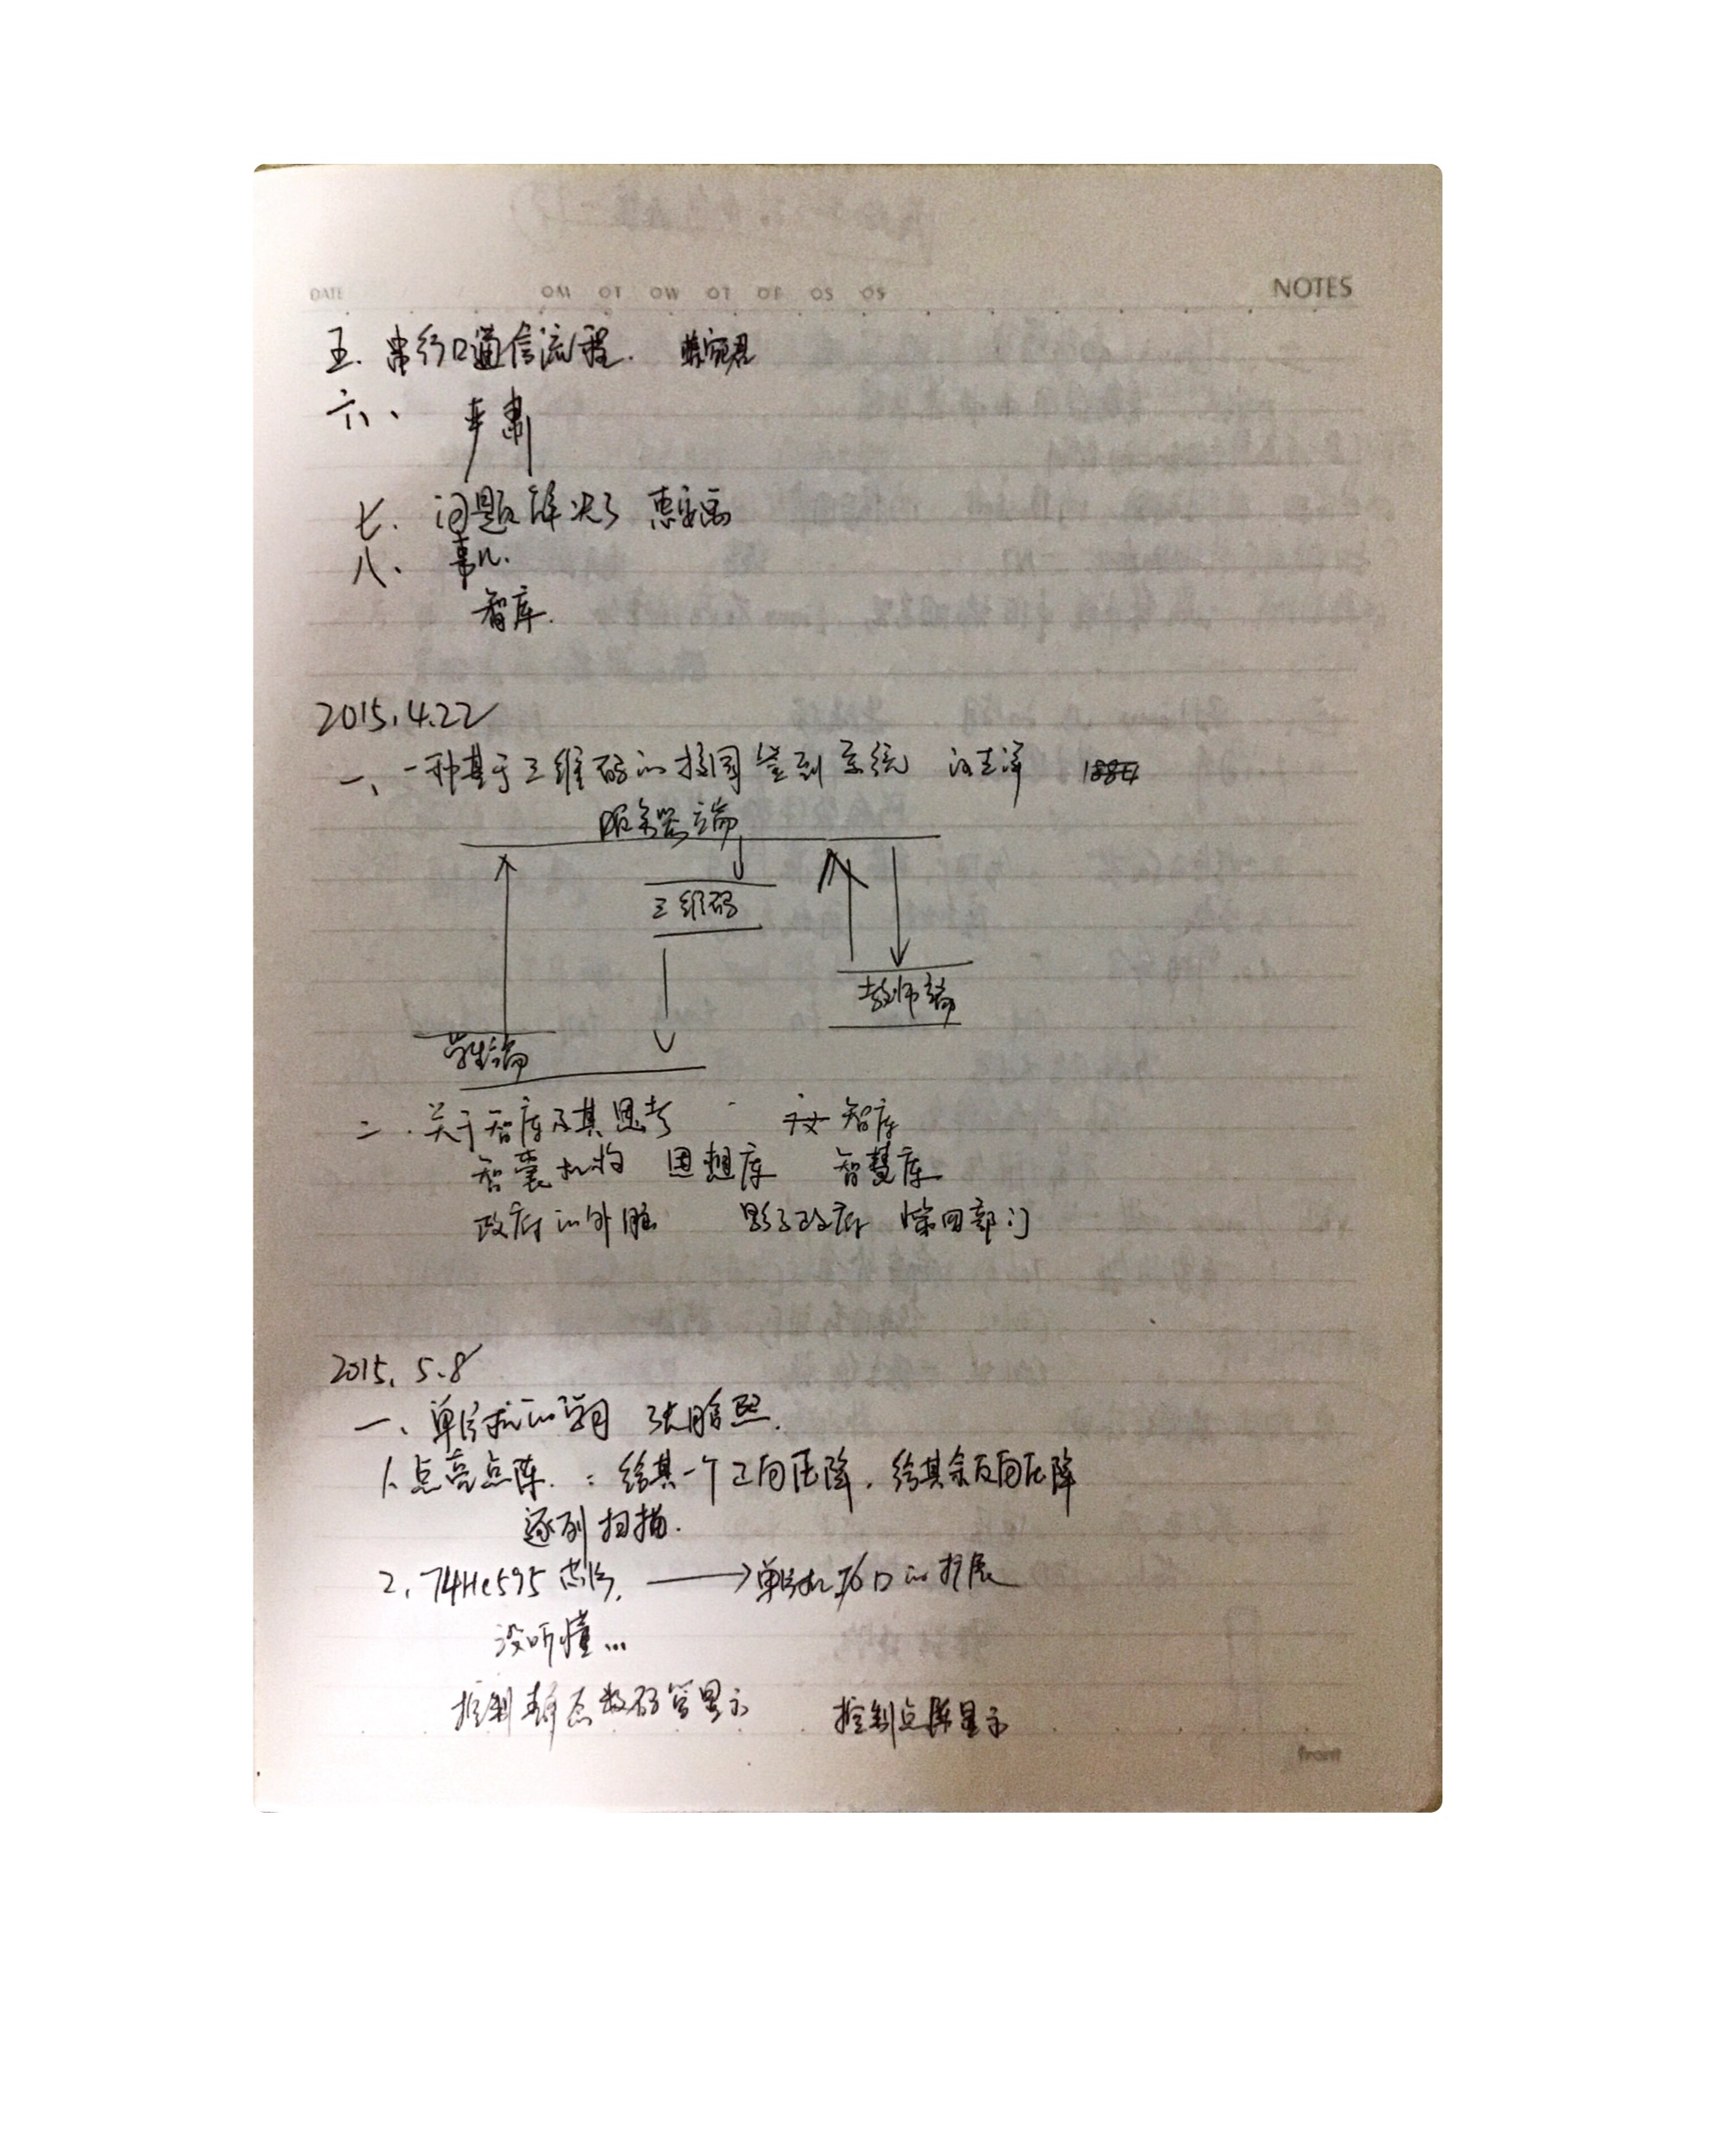 DATE OM OT OW OT OF OS OS NOTES
五. 串行口通信流程.
六、
七. 问题解决了
八、
智库.
2015.4.22
一、一种基于三维码的校园签到系统
服务器端
三维码
教师端
学生端
二. 关于智库及其思考 智库
智囊机构 思想库 智慧库
政府的外脑 影子政府 第四部门
2015. 5.8
一、单片机的学习
1. 点亮点阵. : 给其一个正向压降. 给其余反向压降
逐列扫描.
2. 74HC595芯片. → 单片机 I/O 口的扩展
没听懂...
控制静态数码管显示 控制点阵显示
front